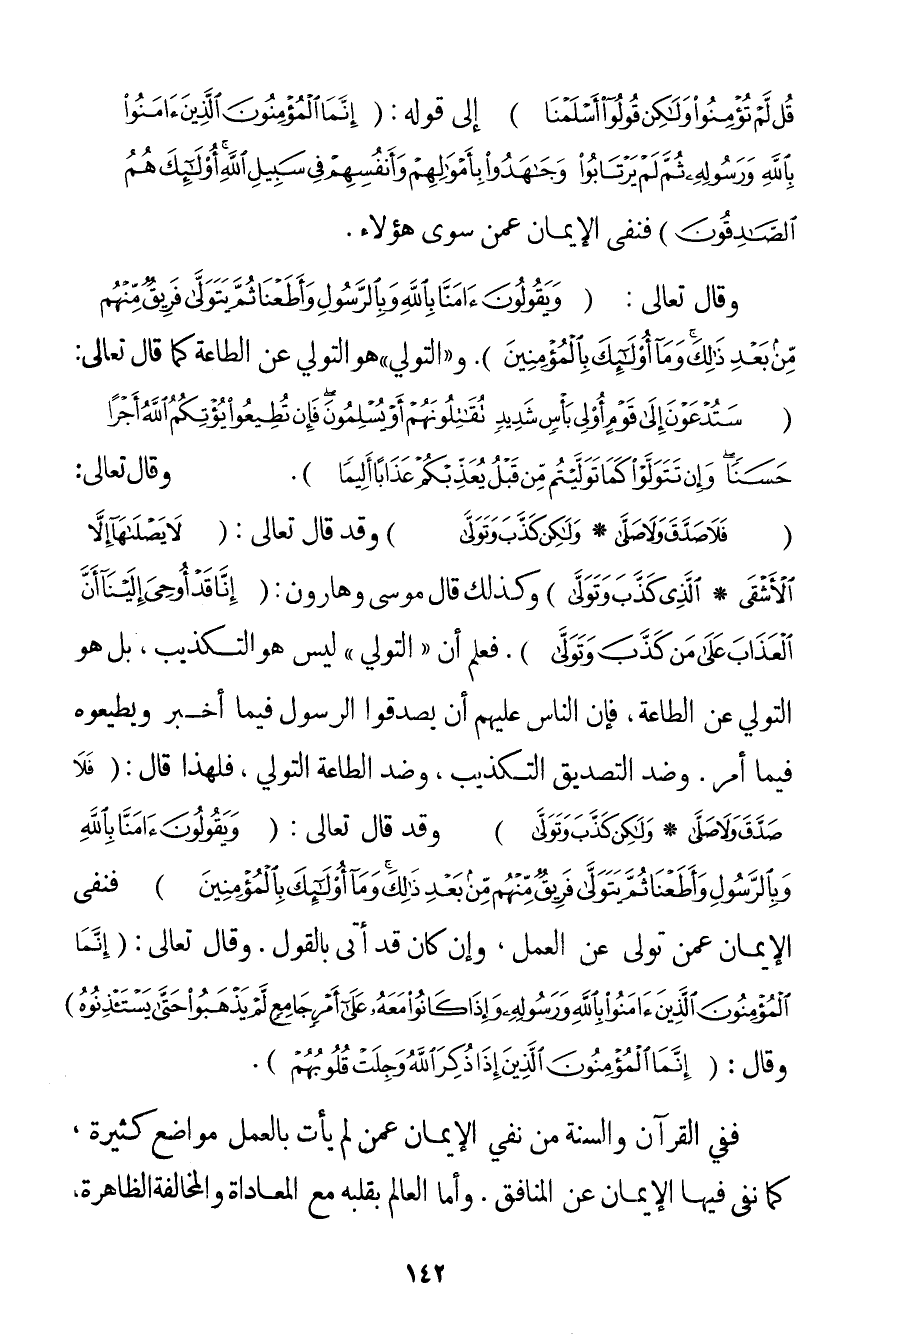 قُل لَّمْ تُؤْمِنُوا۟ وَلَـٰكِن قُولُوٓا۟ أَسْلَمْنَا ) إلى قوله : ( إِنَّمَا ٱلْمُؤْمِنُونَ ٱلَّذِينَ ءَامَنُوا۟
بِٱللَّهِ وَرَسُولِهِۦ ثُمَّ لَمْ يَرْتَابُوا۟ وَجَـٰهَدُوا۟ بِأَمْوَٰلِهِمْ وَأَنفُسِهِمْ فِى سَبِيلِ ٱللَّهِ ۚ أُو۟لَـٰٓئِكَ هُمُ
ٱلصَّـٰدِقُونَ ) فنفى الإيمان عمن سوى هؤلاء .
وقال تعالى : ( وَيَقُولُونَ ءَامَنَّا بِٱللَّهِ وَبِٱلرَّسُولِ وَأَطَعْنَا ثُمَّ يَتَوَلَّىٰ فَرِيقٌ مِّنْهُم
مِّنۢ بَعْدِ ذَٰلِكَ ۚ وَمَآ أُو۟لَـٰٓئِكَ بِٱلْمُؤْمِنِينَ ). و«التولي»هو التولي عن الطاعة كما قال تعالى:
( سَتُدْعَوْنَ إِلَىٰ قَوْمٍ أُو۟لِى بَأْسٍ شَدِيدٍ تُقَـٰتِلُونَهُمْ أَوْ يُسْلِمُونَ ۖ فَإِن تُطِيعُوا۟ يُؤْتِكُمُ ٱللَّهُ أَجْرًا
حَسَنًا ۖ وَإِن تَتَوَلَّوْا۟ كَمَا تَوَلَّيْتُم مِّن قَبْلُ يُعَذِّبْكُمْ عَذَابًا أَلِيمًا ). وقال تعالى:
( فَلَا صَدَّقَ وَلَا صَلَّىٰ * وَلَـٰكِن كَذَّبَ وَتَوَلَّىٰ ) وقد قال تعالى : ( لَا يَصْلَىٰهَآ إِلَّا
ٱلْأَشْقَى * ٱلَّذِى كَذَّبَ وَتَوَلَّىٰ ) وكذلك قال موسى وهارون : ( إِنَّا قَدْ أُوحِىَ إِلَيْنَآ أَنَّ
ٱلْعَذَابَ عَلَىٰ مَن كَذَّبَ وَتَوَلَّىٰ ) . فعلم أن « التولي » ليس هو التكذيب ، بل هو
التولي عن الطاعة ، فإن الناس عليهم أن يصدقوا الرسول فيما أخبر ويطيعوه
فيما أمر . وضد التصديق التكذيب ، وضد الطاعة التولي ، فلهذا قال : ( فَلَا
صَدَّقَ وَلَا صَلَّىٰ * وَلَـٰكِن كَذَّبَ وَتَوَلَّىٰ ) وقد قال تعالى : ( وَيَقُولُونَ ءَامَنَّا بِٱللَّهِ
وَبِٱلرَّسُولِ وَأَطَعْنَا ثُمَّ يَتَوَلَّىٰ فَرِيقٌ مِّنْهُم مِّنۢ بَعْدِ ذَٰلِكَ ۚ وَمَآ أُو۟لَـٰٓئِكَ بِٱلْمُؤْمِنِينَ ) فنفى
الإيمان عمن تولى عن العمل ، وإن كان قد أتى بالقول . وقال تعالى : ( إِنَّمَا
ٱلْمُؤْمِنُونَ ٱلَّذِينَ ءَامَنُوا۟ بِٱللَّهِ وَرَسُولِهِۦ وَإِذَا كَانُوا۟ مَعَهُۥ عَلَىٰٓ أَمْرٍ جَامِعٍ لَّمْ يَذْهَبُوا۟ حَتَّىٰ يَسْتَـْٔذِنُوهُ )
وقال : ( إِنَّمَا ٱلْمُؤْمِنُونَ ٱلَّذِينَ إِذَا ذُكِرَ ٱللَّهُ وَجِلَتْ قُلُوبُهُمْ ) .
ففي القرآن والسنة من نفي الإيمان عمن لم يأت بالعمل مواضع كثيرة ،
كما نفى فيها الإيمان عن المنافق . وأما العالم بقلبه مع المعاداة والمخالفة الظاهرة،
١٤٢